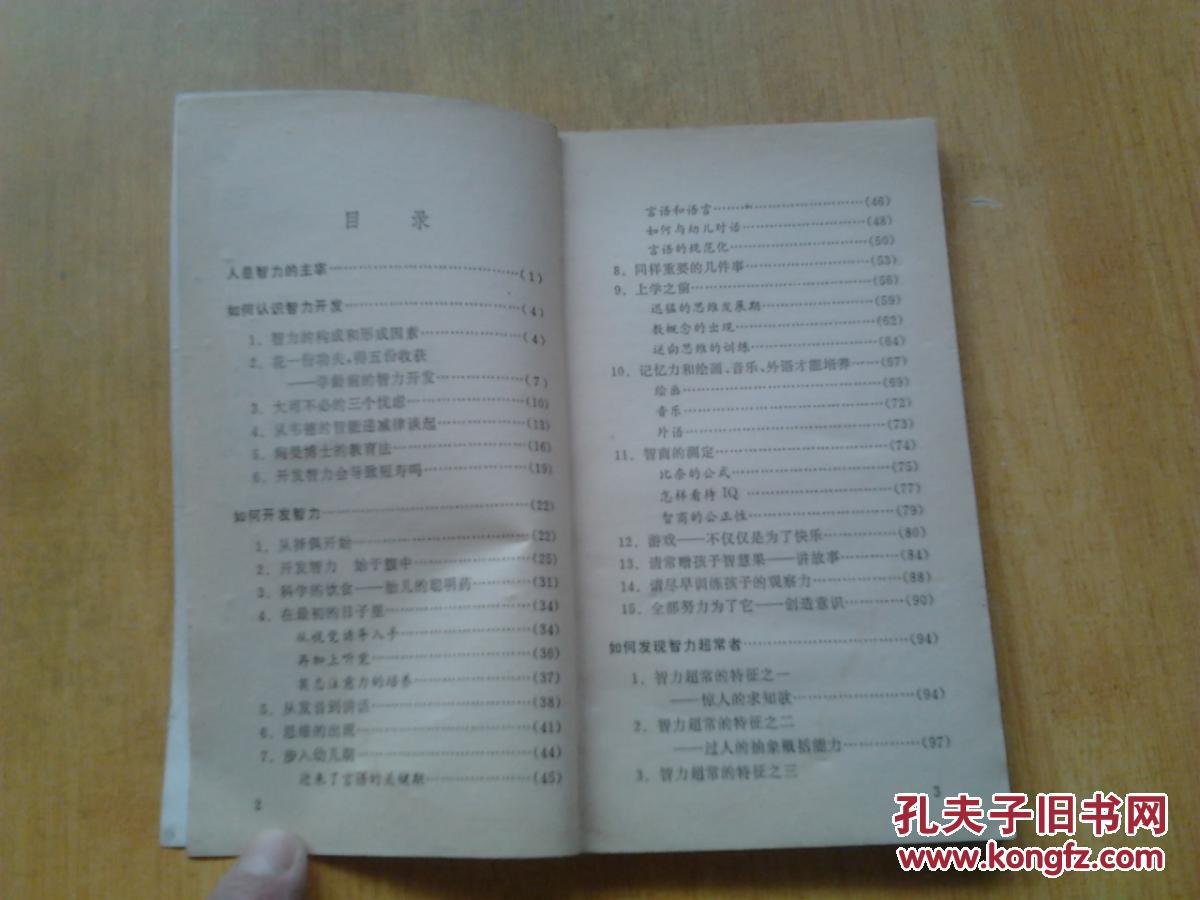 目 录
人是智力的主宰……………………(1)
如何认识智力开发……………………(4)
1．智力的构成和形成因素…………(4)
2．花一份功夫，得五份收获
——学龄前的智力开发…………(7)
3．大可不必的三个忧虑……………(10)
4．从韦德的智能递减律谈起………(13)
5．博士的教育法……………(16)
6．开发智力会导致短寿吗…………(19)
如何开发智力……………………(22)
1．从择偶开始……………………(22)
2．开发智力 始于腹中……………(25)
3．科学的饮食——胎儿的聪明药……(31)
4．在最初的日子里…………………(34)
从视觉诱导入手………………(34)
再加上听觉……………………(36)
莫忘注意力的培养……………(37)
5．从发音到讲话……………………(38)
6．思维的出现………………………(41)
7．步入幼儿期………………………(44)
迎来了言语的关键期…………(45)
2
言语和语言……………………(46)
如何与幼儿对话………………(48)
言语的规范化…………………(50)
8．同样重要的几件事………………(53)
9．上学之前…………………………(56)
迅猛的思维发展期……………(59)
数概念的出现…………………(62)
逆向思维的训练………………(64)
10．记忆力和绘画、音乐、外语才能培养……(67)
绘画……………………………(69)
音乐……………………………(72)
外语……………………………(73)
11．智商的测定……………………(74)
比奈的公式……………………(75)
怎样看待 IQ …………………(77)
智商的公正性…………………(79)
12．游戏——不仅仅是为了快乐……(80)
13．请常赠孩子智慧果——讲故事……(84)
14．请尽早训练孩子的观察力………(88)
15．全部努力为了它——创造意识……(90)
如何发现智力超常者………………(94)
1．智力超常的特征之一
——惊人的求知欲……………(94)
2．智力超常的特征之二
——过人的抽象概括能力………(97)
3．智力超常的特征之三
3
孔夫子旧书网
www.kongfz.com